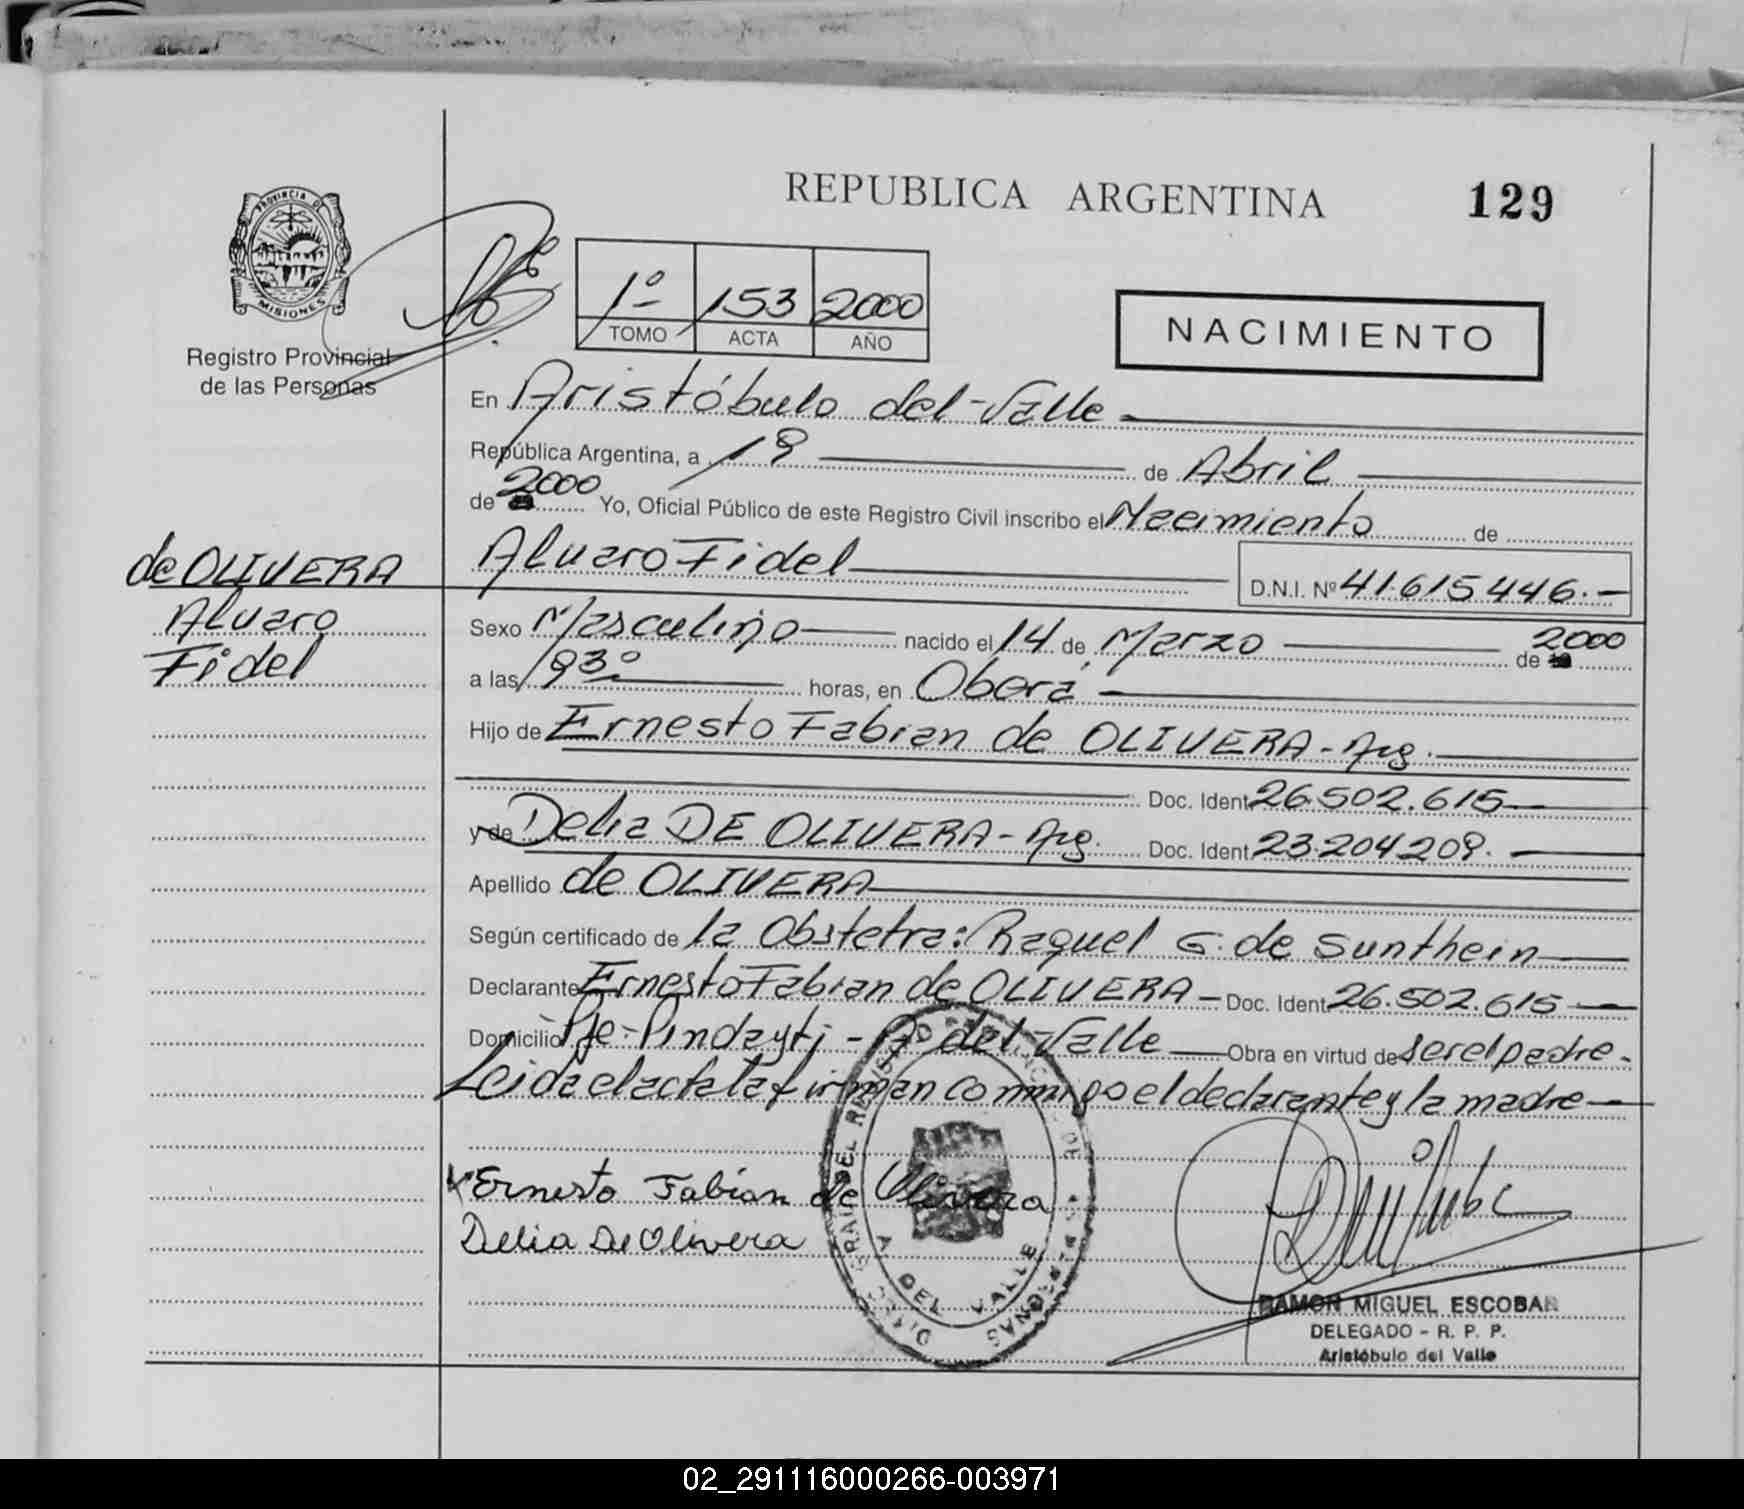 REPUBLICA ARGENTINA
129
PROVINCIA DE
MISIONES
Registro Provincial
de las Personas
1º 153 2000
TOMO ACTA AÑO
NACIMIENTO
En Aristóbulo del Valle
República Argentina, a 19 de Abril
de 2000 Yo, Oficial Público de este Registro Civil inscribo el Nacimiento de
de OLIVERA
Alvaro
Fidel
Alvaro Fidel D.N.I. Nº 41.615.446.-
Sexo Masculino nacido el 14 de Marzo de 2000
a las 19³⁰ horas, en Oberá
Hijo de Ernesto Fabian de OLIVERA - Arg.
Doc. Ident. 26.502.615
y de Delia DE OLIVERA - Arg. Doc. Ident. 23.204.209.
Apellido de OLIVERA
Según certificado de la Obstetra: Raquel G. de Sunthein
Declarante Ernesto Fabian de OLIVERA - Doc. Ident. 26.502.615
Domicilio Pje. Pindayti - Aº del Valle Obra en virtud de ser el padre.
Leida el acta la firman conmigo el declarante y la madre
Ernesto Fabián de Olivera
Delia De Olivera
DEL VALLE
RAMON MIGUEL ESCOBAR
DELEGADO - R. P. P.
Aristóbulo del Valle
02_291116000266-003971